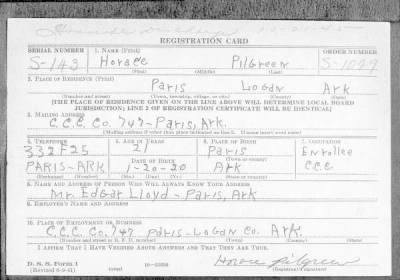 REGISTRATION CARD
SERIAL NUMBER 1. NAME (Print) ORDER NUMBER
S-143 Horace Pilgreen S-1099
(First) (Middle) (Last)
2. PLACE OF RESIDENCE (Print)
Paris Logan Ark
(Number and street) (Town, township, village, or city) (County) (State)
[THE PLACE OF RESIDENCE GIVEN ON THE LINE ABOVE WILL DETERMINE LOCAL BOARD
JURISDICTION; LINE 2 OF REGISTRATION CERTIFICATE WILL BE IDENTICAL]
3. MAILING ADDRESS
C.C.C. Co. 747-Paris, Ark.
[Mailing address if other than place indicated on line 2. If same insert word same]
4. TELEPHONE 5. AGE IN YEARS 6. PLACE OF BIRTH 7. OCCUPATION
332F25 21 Paris Enrollee
DATE OF BIRTH (Town or county)
PARIS-ARK 1-20-20 Ark CCC
(Exchange) (Number) (Mo.) (Day) (Yr.) (State or country)
8. NAME AND ADDRESS OF PERSON WHO WILL ALWAYS KNOW YOUR ADDRESS
Mr. Edgar Lloyd - Paris, Ark
9. EMPLOYER'S NAME AND ADDRESS
10. PLACE OF EMPLOYMENT OR BUSINESS
C.C.C. Co. 747 Paris-Logan Co. Ark.
(Number and street or R. F. D. number) (Town) (County) (State)
I AFFIRM THAT I HAVE VERIFIED ABOVE ANSWERS AND THAT THEY ARE TRUE.
D. S. S. Form 1 Horace Pilgreen
(Registrant's signature)